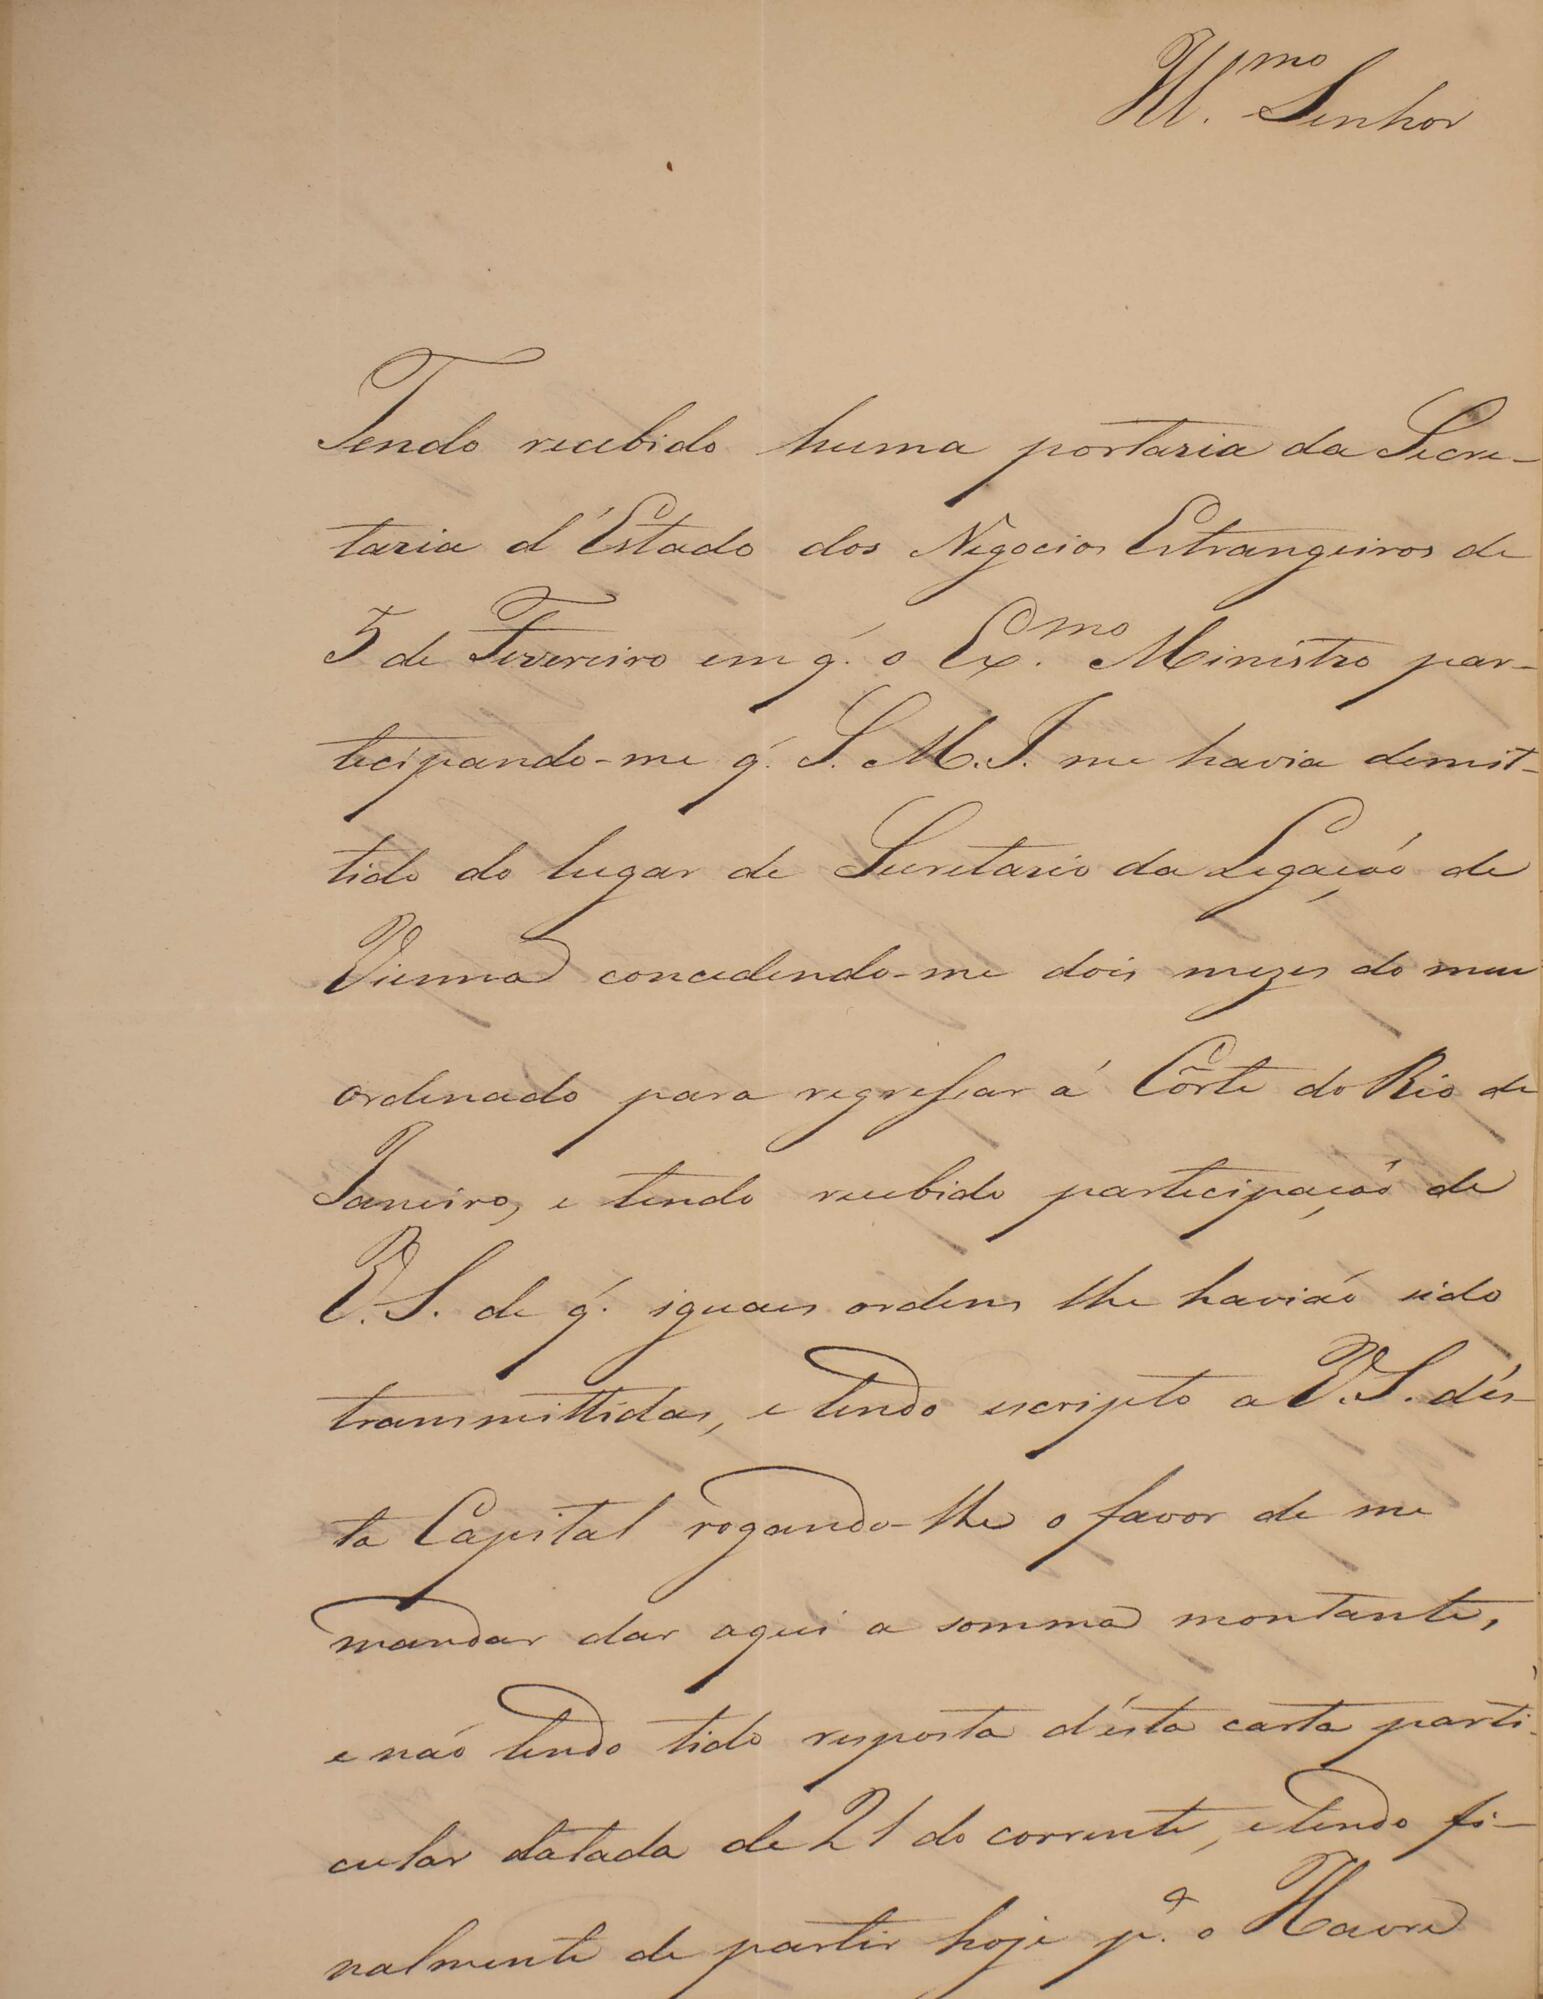 Ill.mo Senhor
Tendo recebido huma portaria da Secre-
taria d'Estado dos Negocios Estrangeiros de
5 de Fevereiro em q. o Ex.mo Ministro par-
tecipando-me q. S. M. I. me havia demit-
tido do lugar de Secretario da Legação de
Vienna concedendo-me dois mezes do meu
ordenado para regressar á Côrte do Rio de
Janeiro, e tendo recebido partecipação de
V. S. de q. iguaes ordens lhe havião sido
transmittidas, e tendo escripto a V. S. dés-
ta Capital rogando-lhe o favor de me
mandar dar aqui a somma montante,
e não tendo tido resposta d'ésta carta parti-
cular datada de 21 do corrente, e tendo fi-
nalmente de partir hoje p.a o Havre